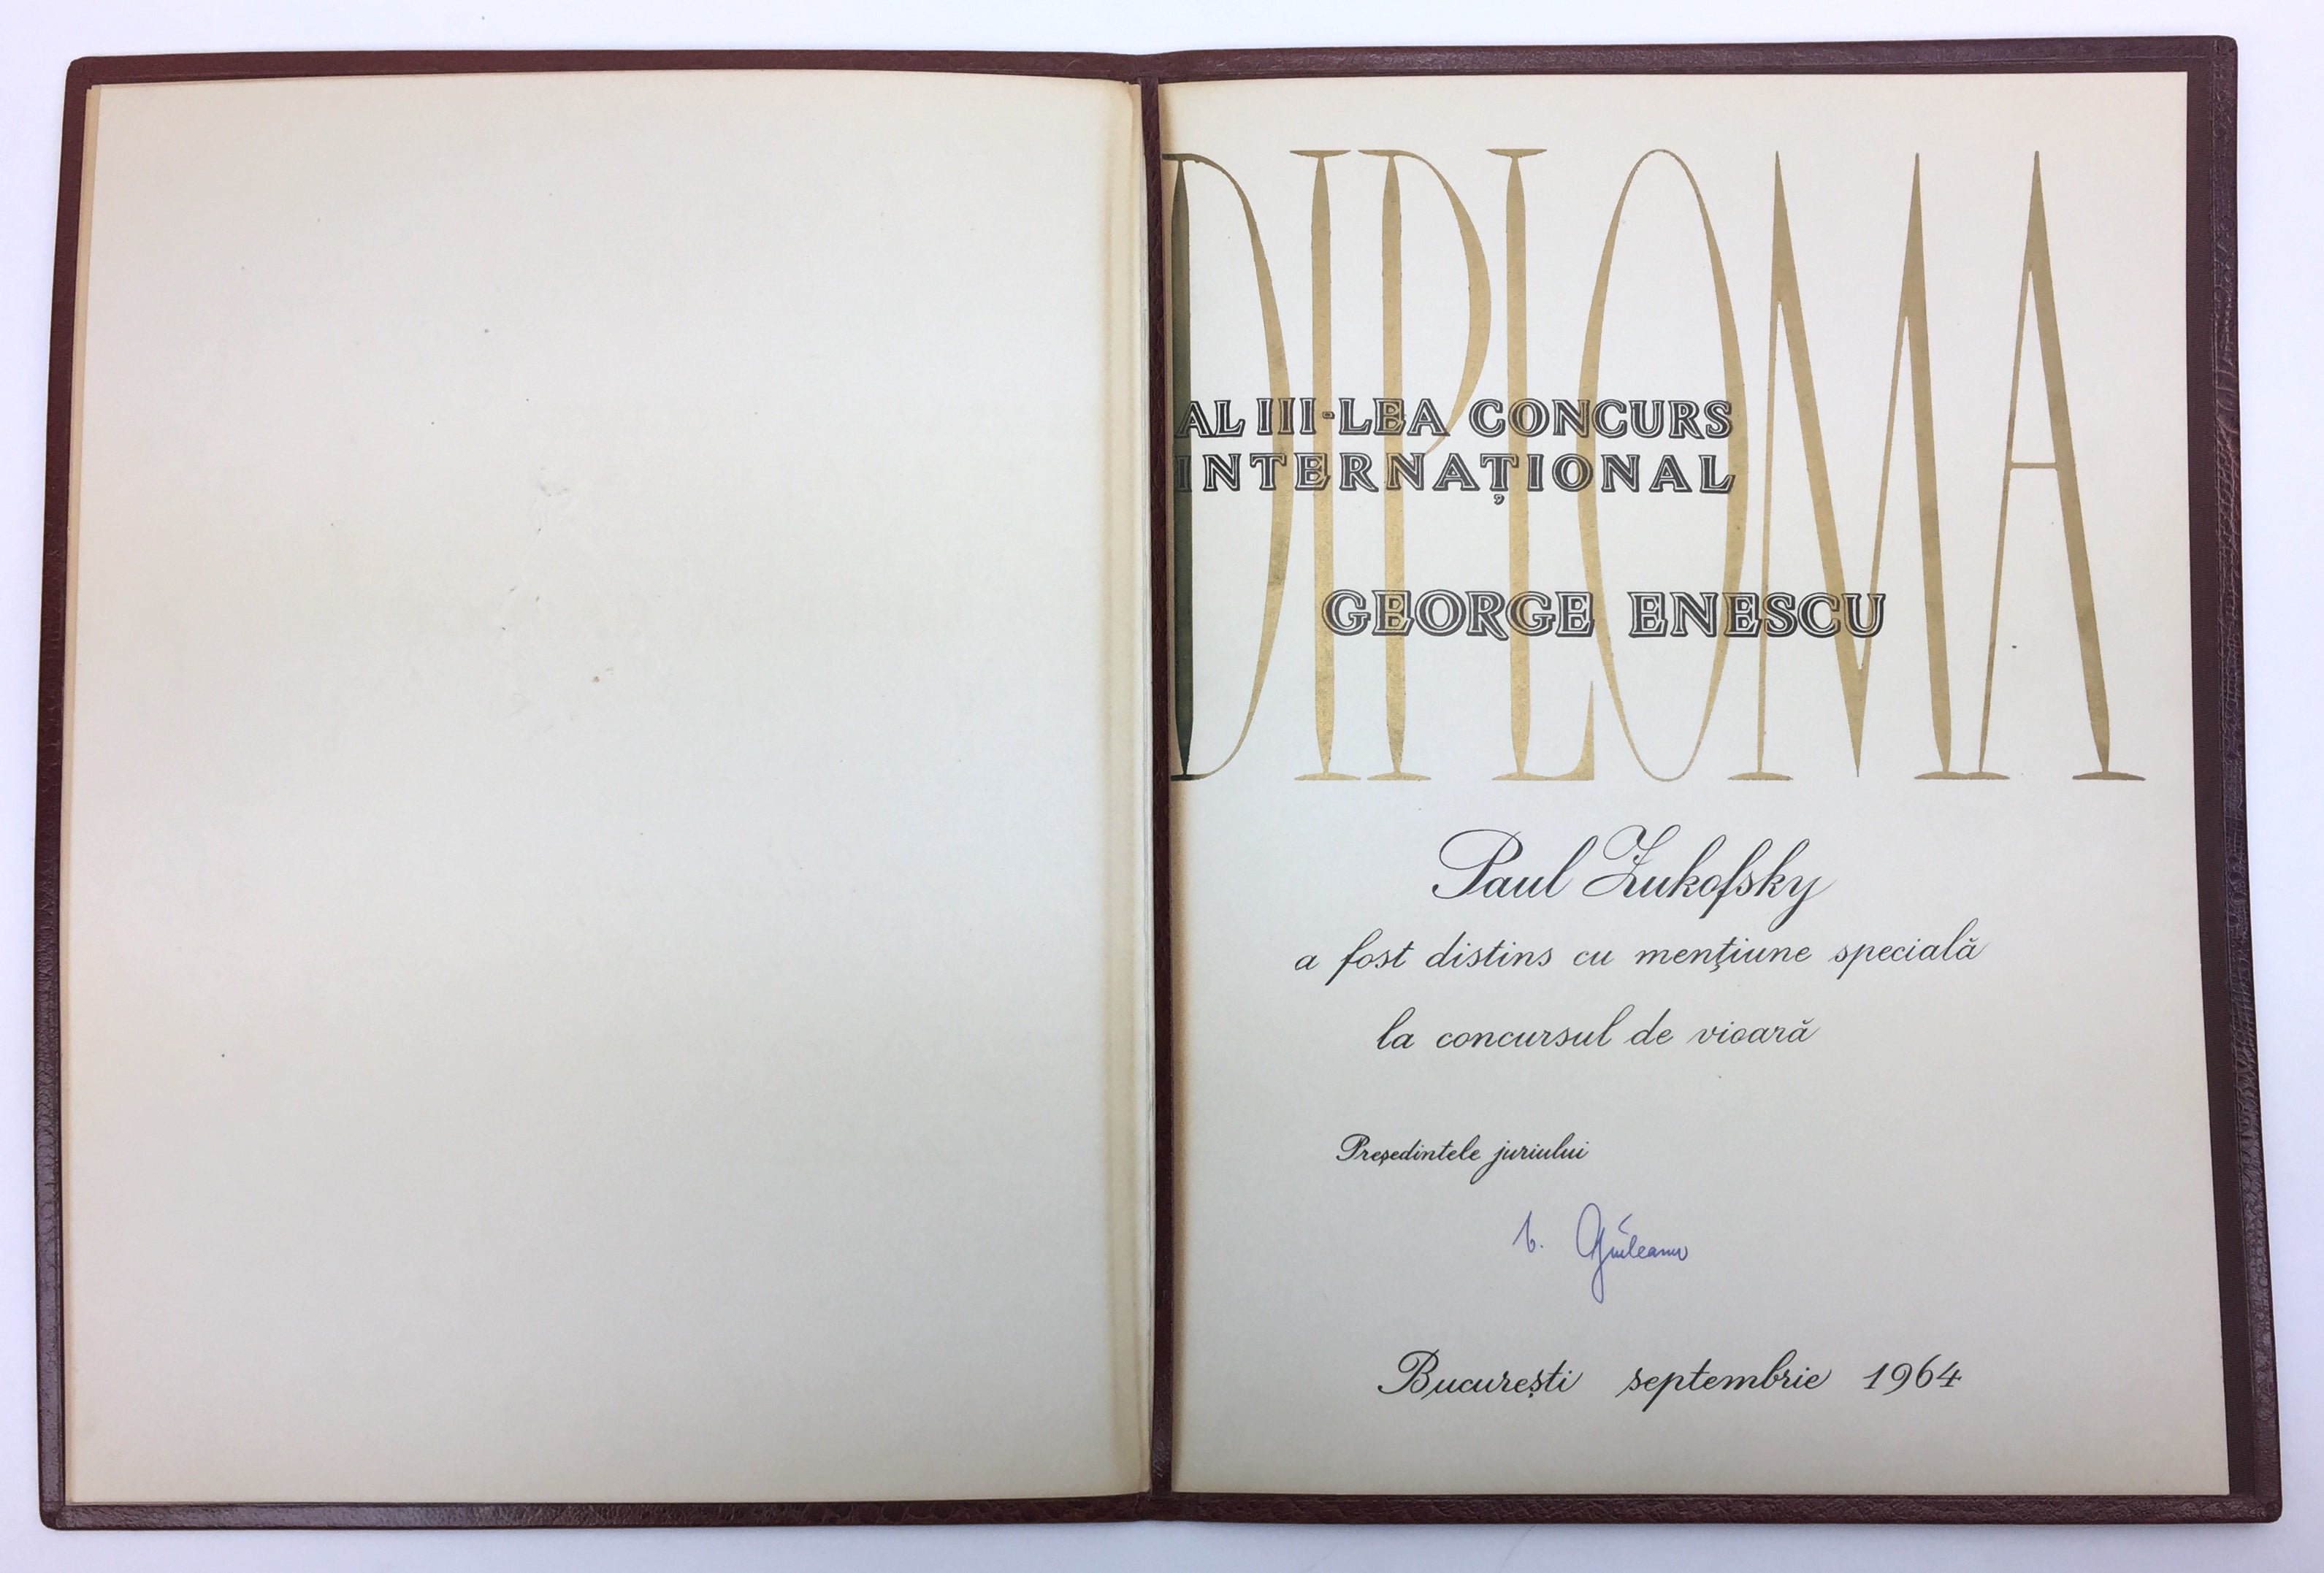 DIPLOMA
AL III-LEA CONCURS
INTERNAȚIONAL
GEORGE ENESCU
Paul Zukofsky
a fost distins cu mențiune specială
la concursul de vioară
Președintele juriului
București septembrie 1964